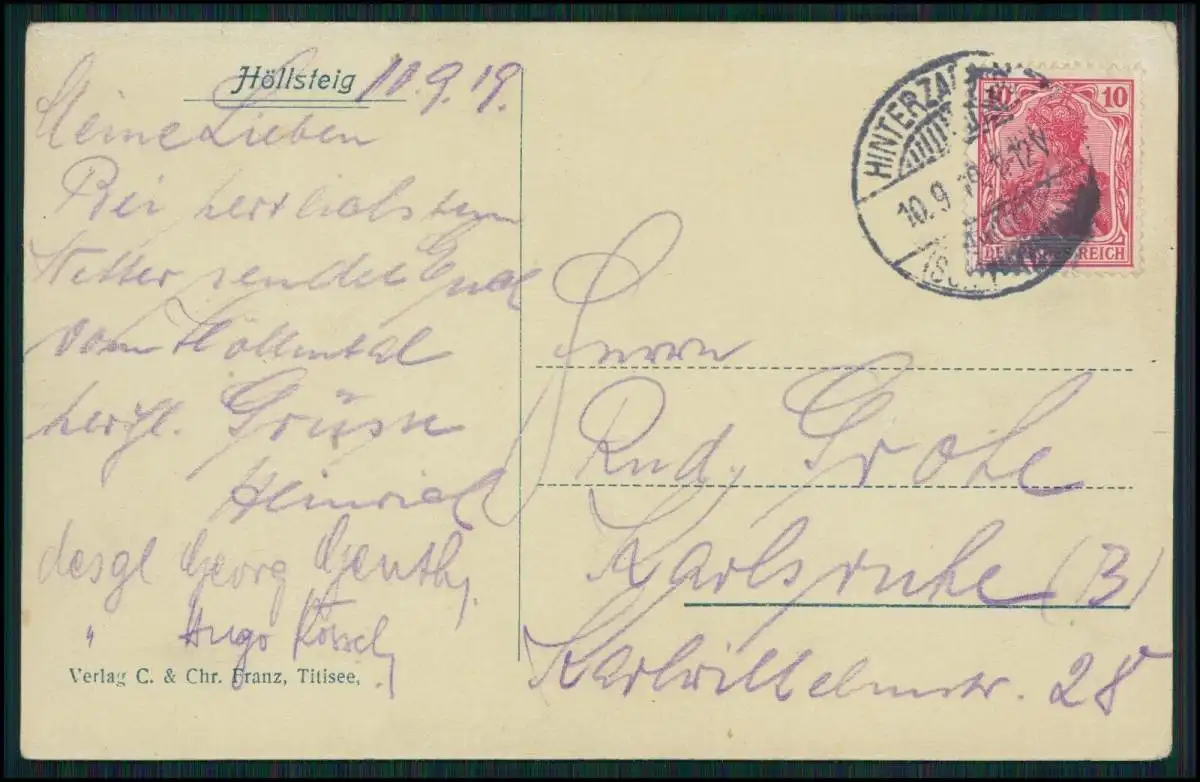 Höllsteig 10.9.19.
Meine Lieben
Bei herrlichstem
Wetter sendet Euch
vom Höllental
herzl. Grüsse
Heinrich
desgl Georg
" Hugo
Verlag C. & Chr. Franz, Titisee,
HINTERZA
10.9.19. 11-12V
10 10
DEUTSCHES REICH
Herrn
Rud. Grohe
Karlsruhe (B)
Karlwilhelmstr. 28